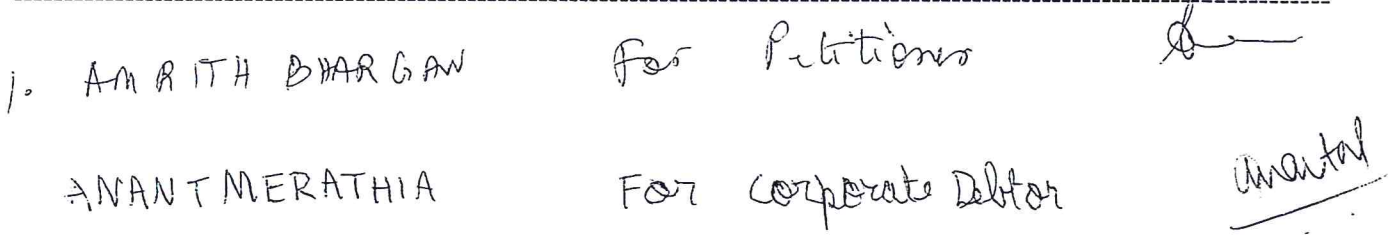 1. AMRITH BHARGAV For Petitioner
ANANT MERATHIA For Corporate Debtor